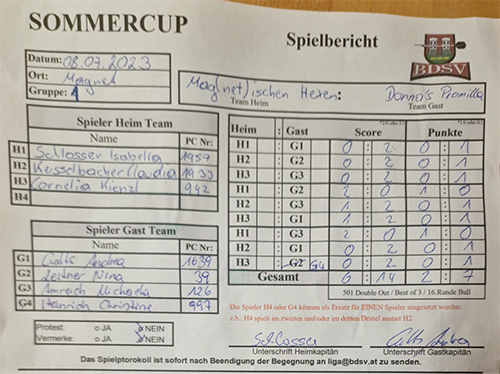 SOMMERCUP
Spielbericht
BDSV
Datum: 08.07.2023
Ort: Magnet
Gruppe: 1
Mag(net)ischen Hexen : Donna's Promille
Team Heim Team Gast
Spieler Heim Team
Name PC Nr:
H1 Schlosser Isabella 1957
H2 Kesselbacher Claudia 1933
H3 Cornelia Kienzl 942
H4
Spieler Gast Team
Name PC Nr:
G1 Andrea 1639
G2 Leitner Nina 39
G3 Amreich Michaela 126
G4 Heinrich Christine 997
Heim : Gast Score Punkte
H1 : G1 0 : 2 0 : 1
H2 : G2 0 : 2 0 : 1
H3 : G3 0 : 2 0 : 1
H1 : G2 2 : 0 1 : 0
H2 : G3 1 : 2 0 : 1
H3 : G1 1 : 2 0 : 1
H1 : G3 2 : 0 1 : 0
H2 : G1 0 : 2 0 : 1
H3 : G2 G4 0 : 2 0 : 1
Gesamt 6 : 14 2 : 7
501 Double Out / Best of 3 / 16.Runde Bull
Die Spieler H4 oder G4 können als Ersatz für EINEN Spieler eingesetzt werden.
z.b.: H4 spielt im zweiten und/oder im dritten Drittel anstatt H2
Protest: JA NEIN
Vermerke: JA NEIN
Schlosser
Unterschrift Heimkapitän Unterschrift Gastkapitän
Das Spielptotokoll ist sofort nach Beendigung der Begegnung an liga@bdsv.at zu senden.